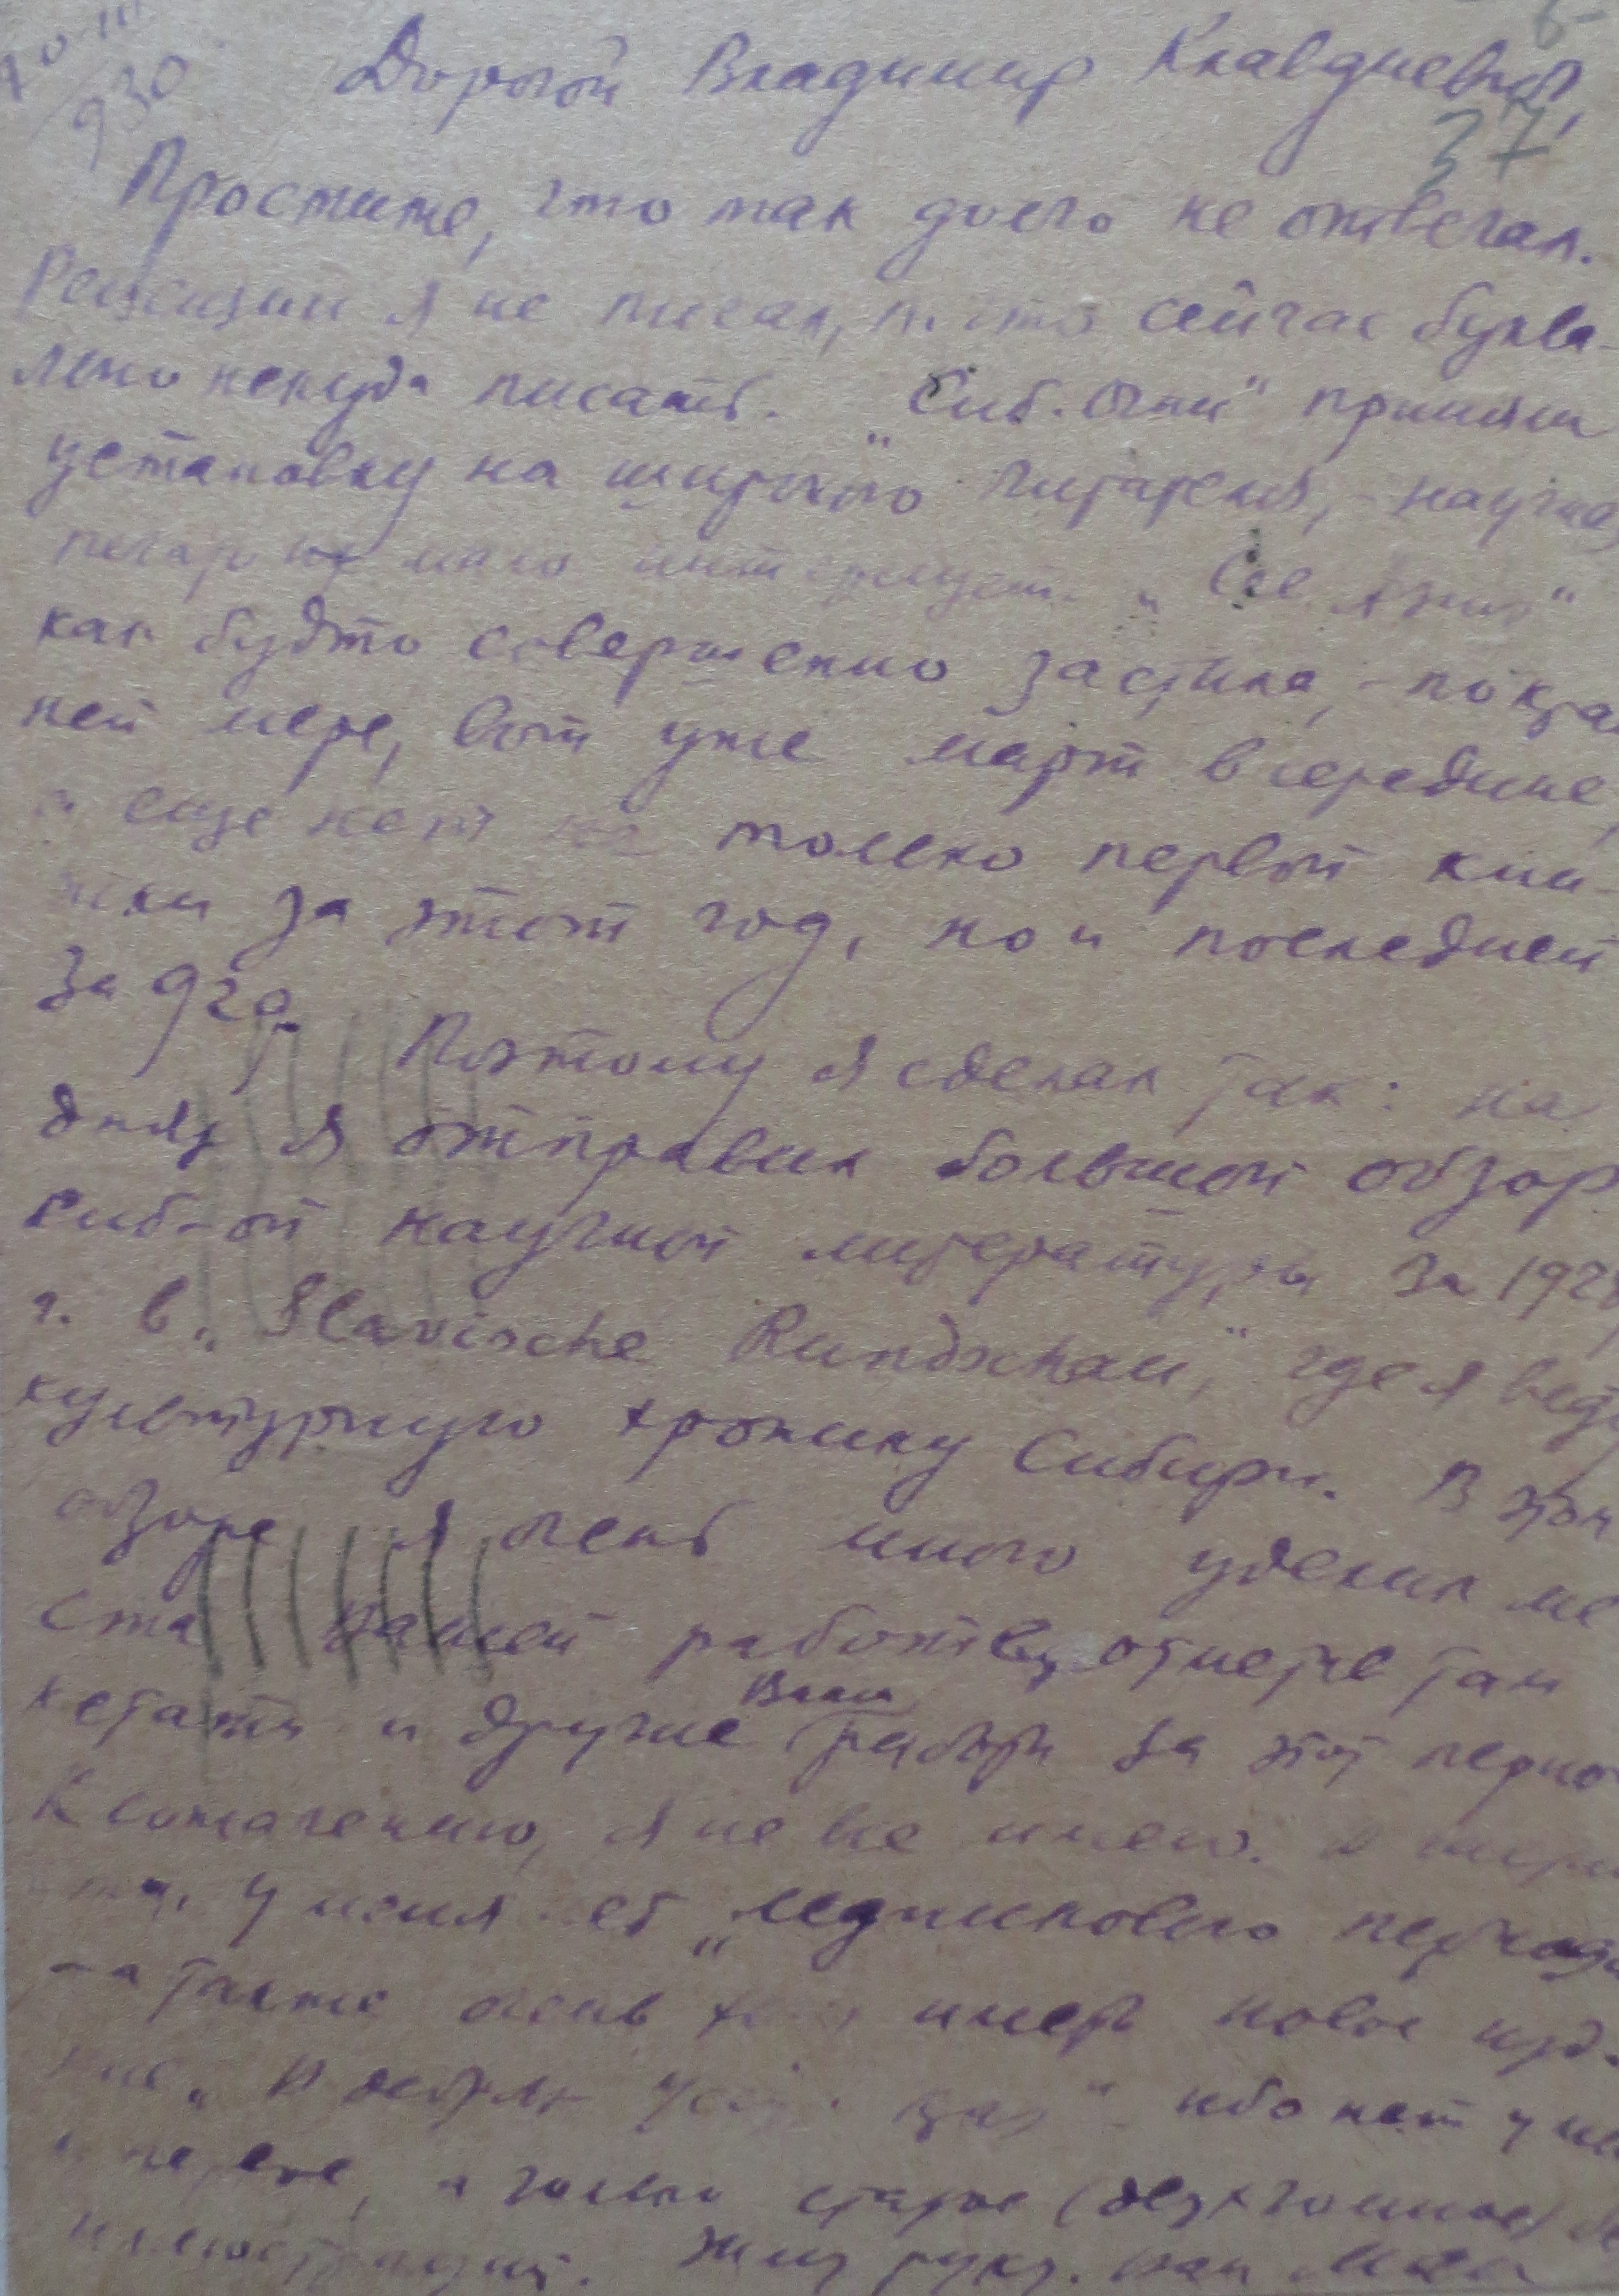 930
Дорогой Владимир Клавдиевич,
37
Простите, что так долго не отвечал.
Рецензии я не писал, сейчас буква-
льно некуда писать. „Сиб. Огни" приняли
установку на „широкого" читателя, – научная
мало интересует.
как будто совершенно застыла, – по край
ней мере, вот уже март в середине,
а еще нет не только первой кни-
жки за этот год, но и последней
за 929. Поэтому я сделал так: на
днях я отправил большой обзор
сиб-ой научной литературы за 192
г. в „Slavische Rundschau", где я веду
культурную хронику Сибири. В этом
обзоре я очень много уделил ме
ста Вашей работе, отметив там
кстати и другие Ваши работы за этот перио
К сожалению, я не все имею.
У меня нет „Ледникового период
а также очень имеет новое изд.
„В дебрях ибо нет у ме
а только старое (двухтомное)
иллюстраций. Жму руку. Ваш